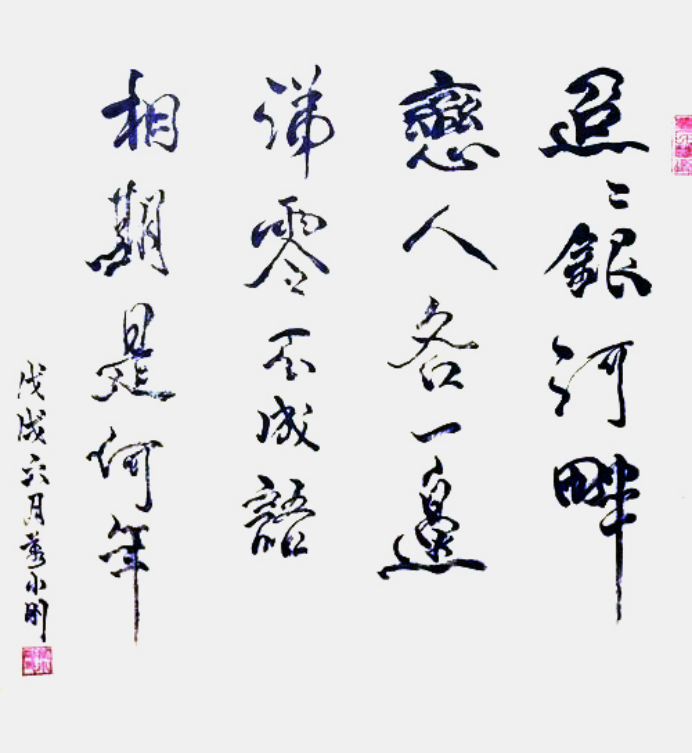 迢〻銀河畔
戀人各一邊
涕零不成語
相期是何年
戊戌六月 小刚